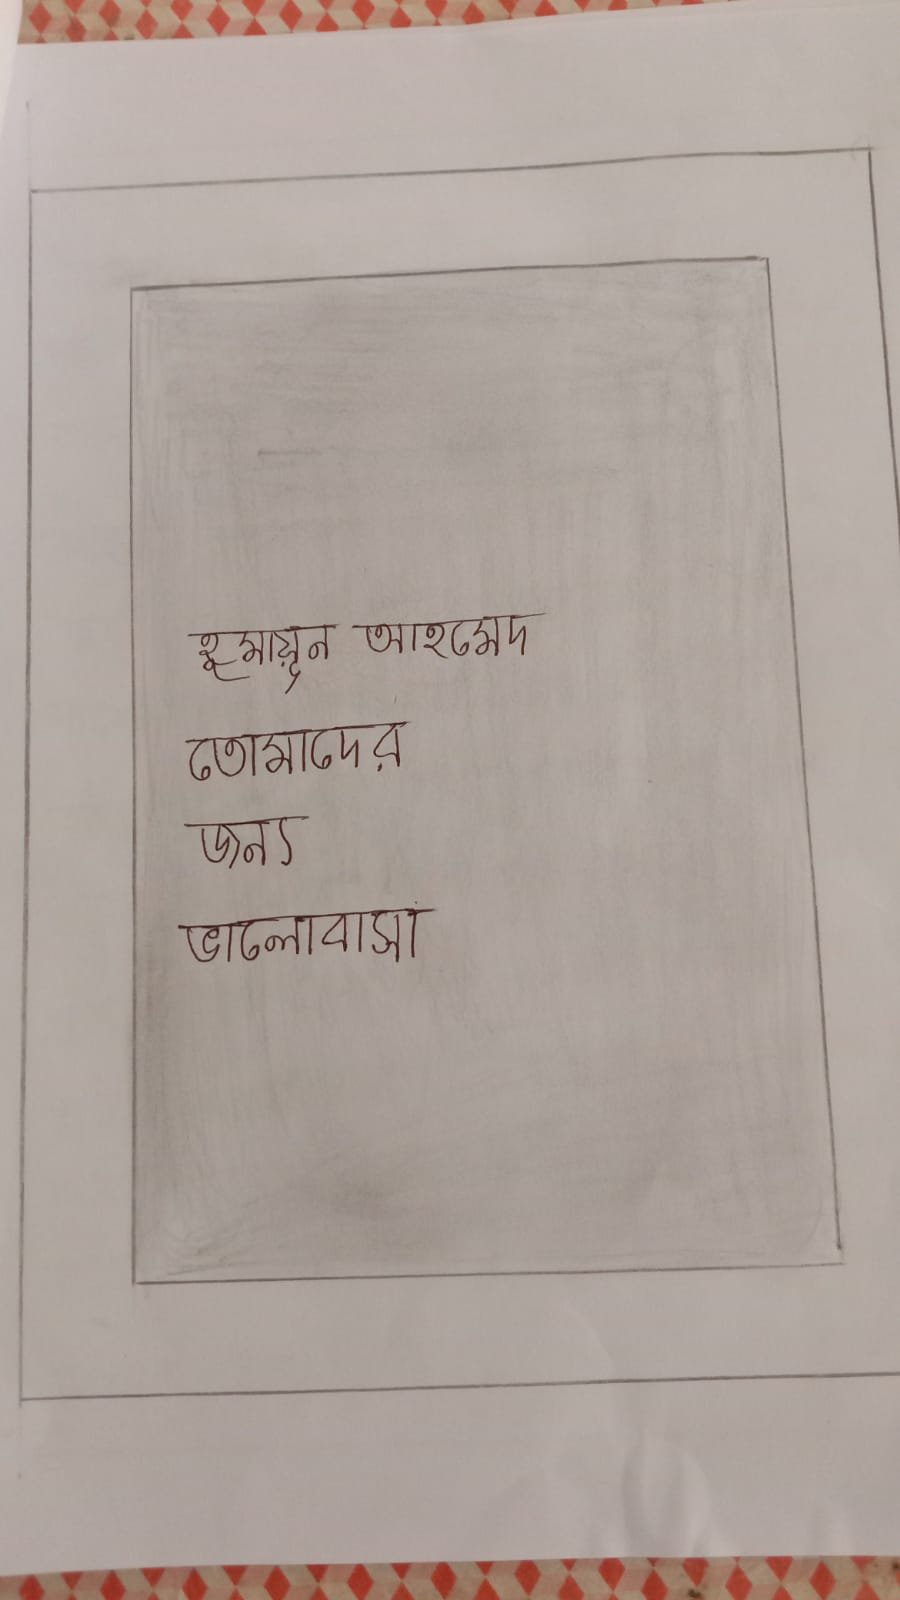 হুমায়ূন আহমেদ
তোমাদের
জন্য
ভালোবাসা